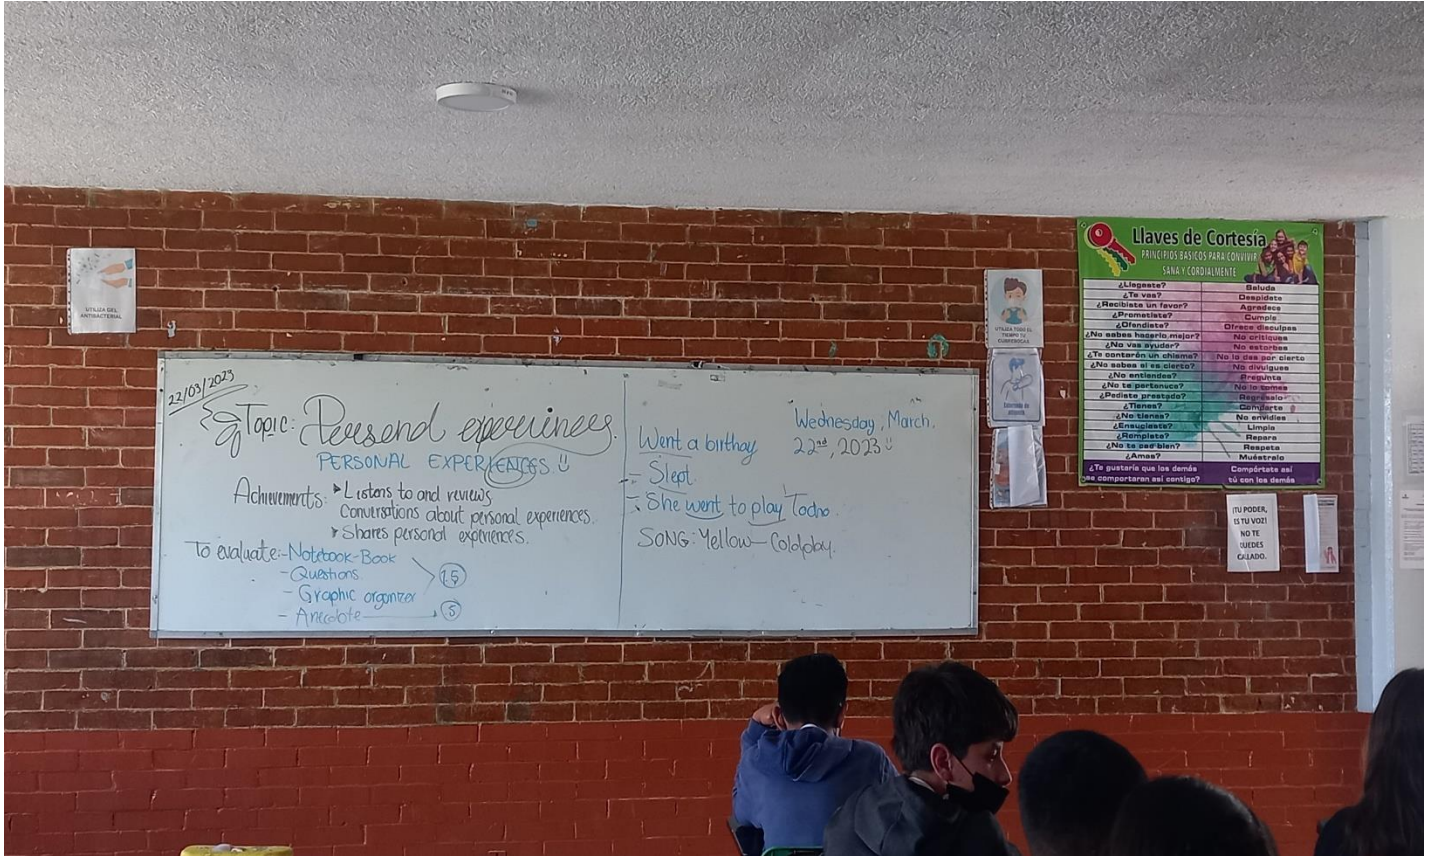 UTILIZA GEL
ANTIBACTERIAL
22/03/2023
Topic: Personal experiences.
PERSONAL EXPERIENCES
Achievements: Listens to and reviews
Conversations about personal experiences.
Shares personal experiences.
To evaluate: - Notebook - Book
- Questions
- Graphic organizer
- Anecdote
5
Wednesday, March.
22nd, 2023
Went a birthay
- Slept.
- She went to play
SONG: Yellow - Coldplay.
UTILIZA TODO EL
TIEMPO TU
CUBREBOCAS
Llaves de Cortesía
PRINCIPIOS BASICOS PARA CONVIVIR
SANA Y CORDIALMENTE
¿Llegaste? Saluda
¿Te vas? Despídete
¿Recibiste un favor? Agradece
¿Prometiste? Cumple
¿Ofendiste? Ofrece disculpas
¿No sabes hacerlo mejor? No critiques
¿No vas ayudar? No estorbes
¿Te contarón un chisme? No lo des por cierto
¿No sabes si es cierto? No divulgues
¿No entiendes? Pregunta
¿No te pertenece? No lo tomes
¿Pediste prestado? Regrésalo
¿Tienes? Comparte
¿No tienes? No envidies
¿Ensuciaste? Limpia
¿Rompiste? Repara
Respeta
¿Amas? Muéstralo
¿Te gustaría que los demás Compórtate así
se comportaran así contigo? tú con los demás
¡TU PODER,
ES TU VOZ!
NO TE
QUEDES
CALLADO.